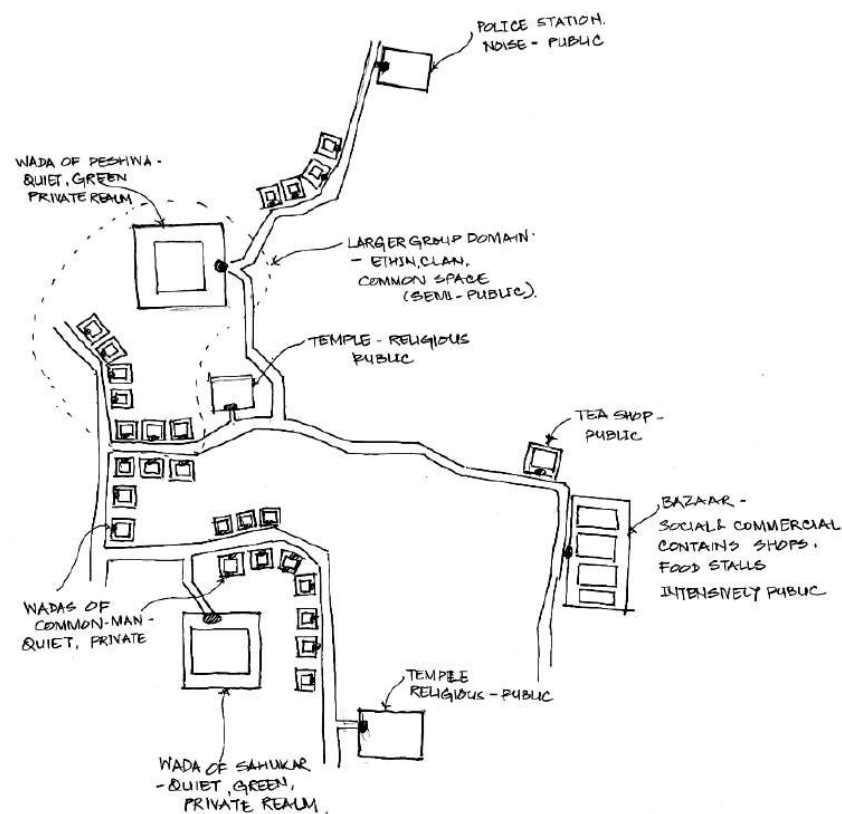 POLICE STATION.
NOISE - PUBLIC
WADA OF PESHWA -
QUIET, GREEN
PRIVATE REALM
LARGER GROUP DOMAIN.
- ETHIN, CLAN,
COMMON SPACE
(SEMI-PUBLIC).
TEMPLE - RELIGIOUS
PUBLIC
TEA SHOP -
PUBLIC
BAZAAR -
SOCIAL & COMMERCIAL
CONTAINS SHOPS,
FOOD STALLS
INTENSIVELY PUBLIC
WADAS OF
COMMON-MAN -
QUIET, PRIVATE
TEMPLE
RELIGIOUS - PUBLIC
WADA OF SAHUKAR
- QUIET, GREEN,
PRIVATE REALM.